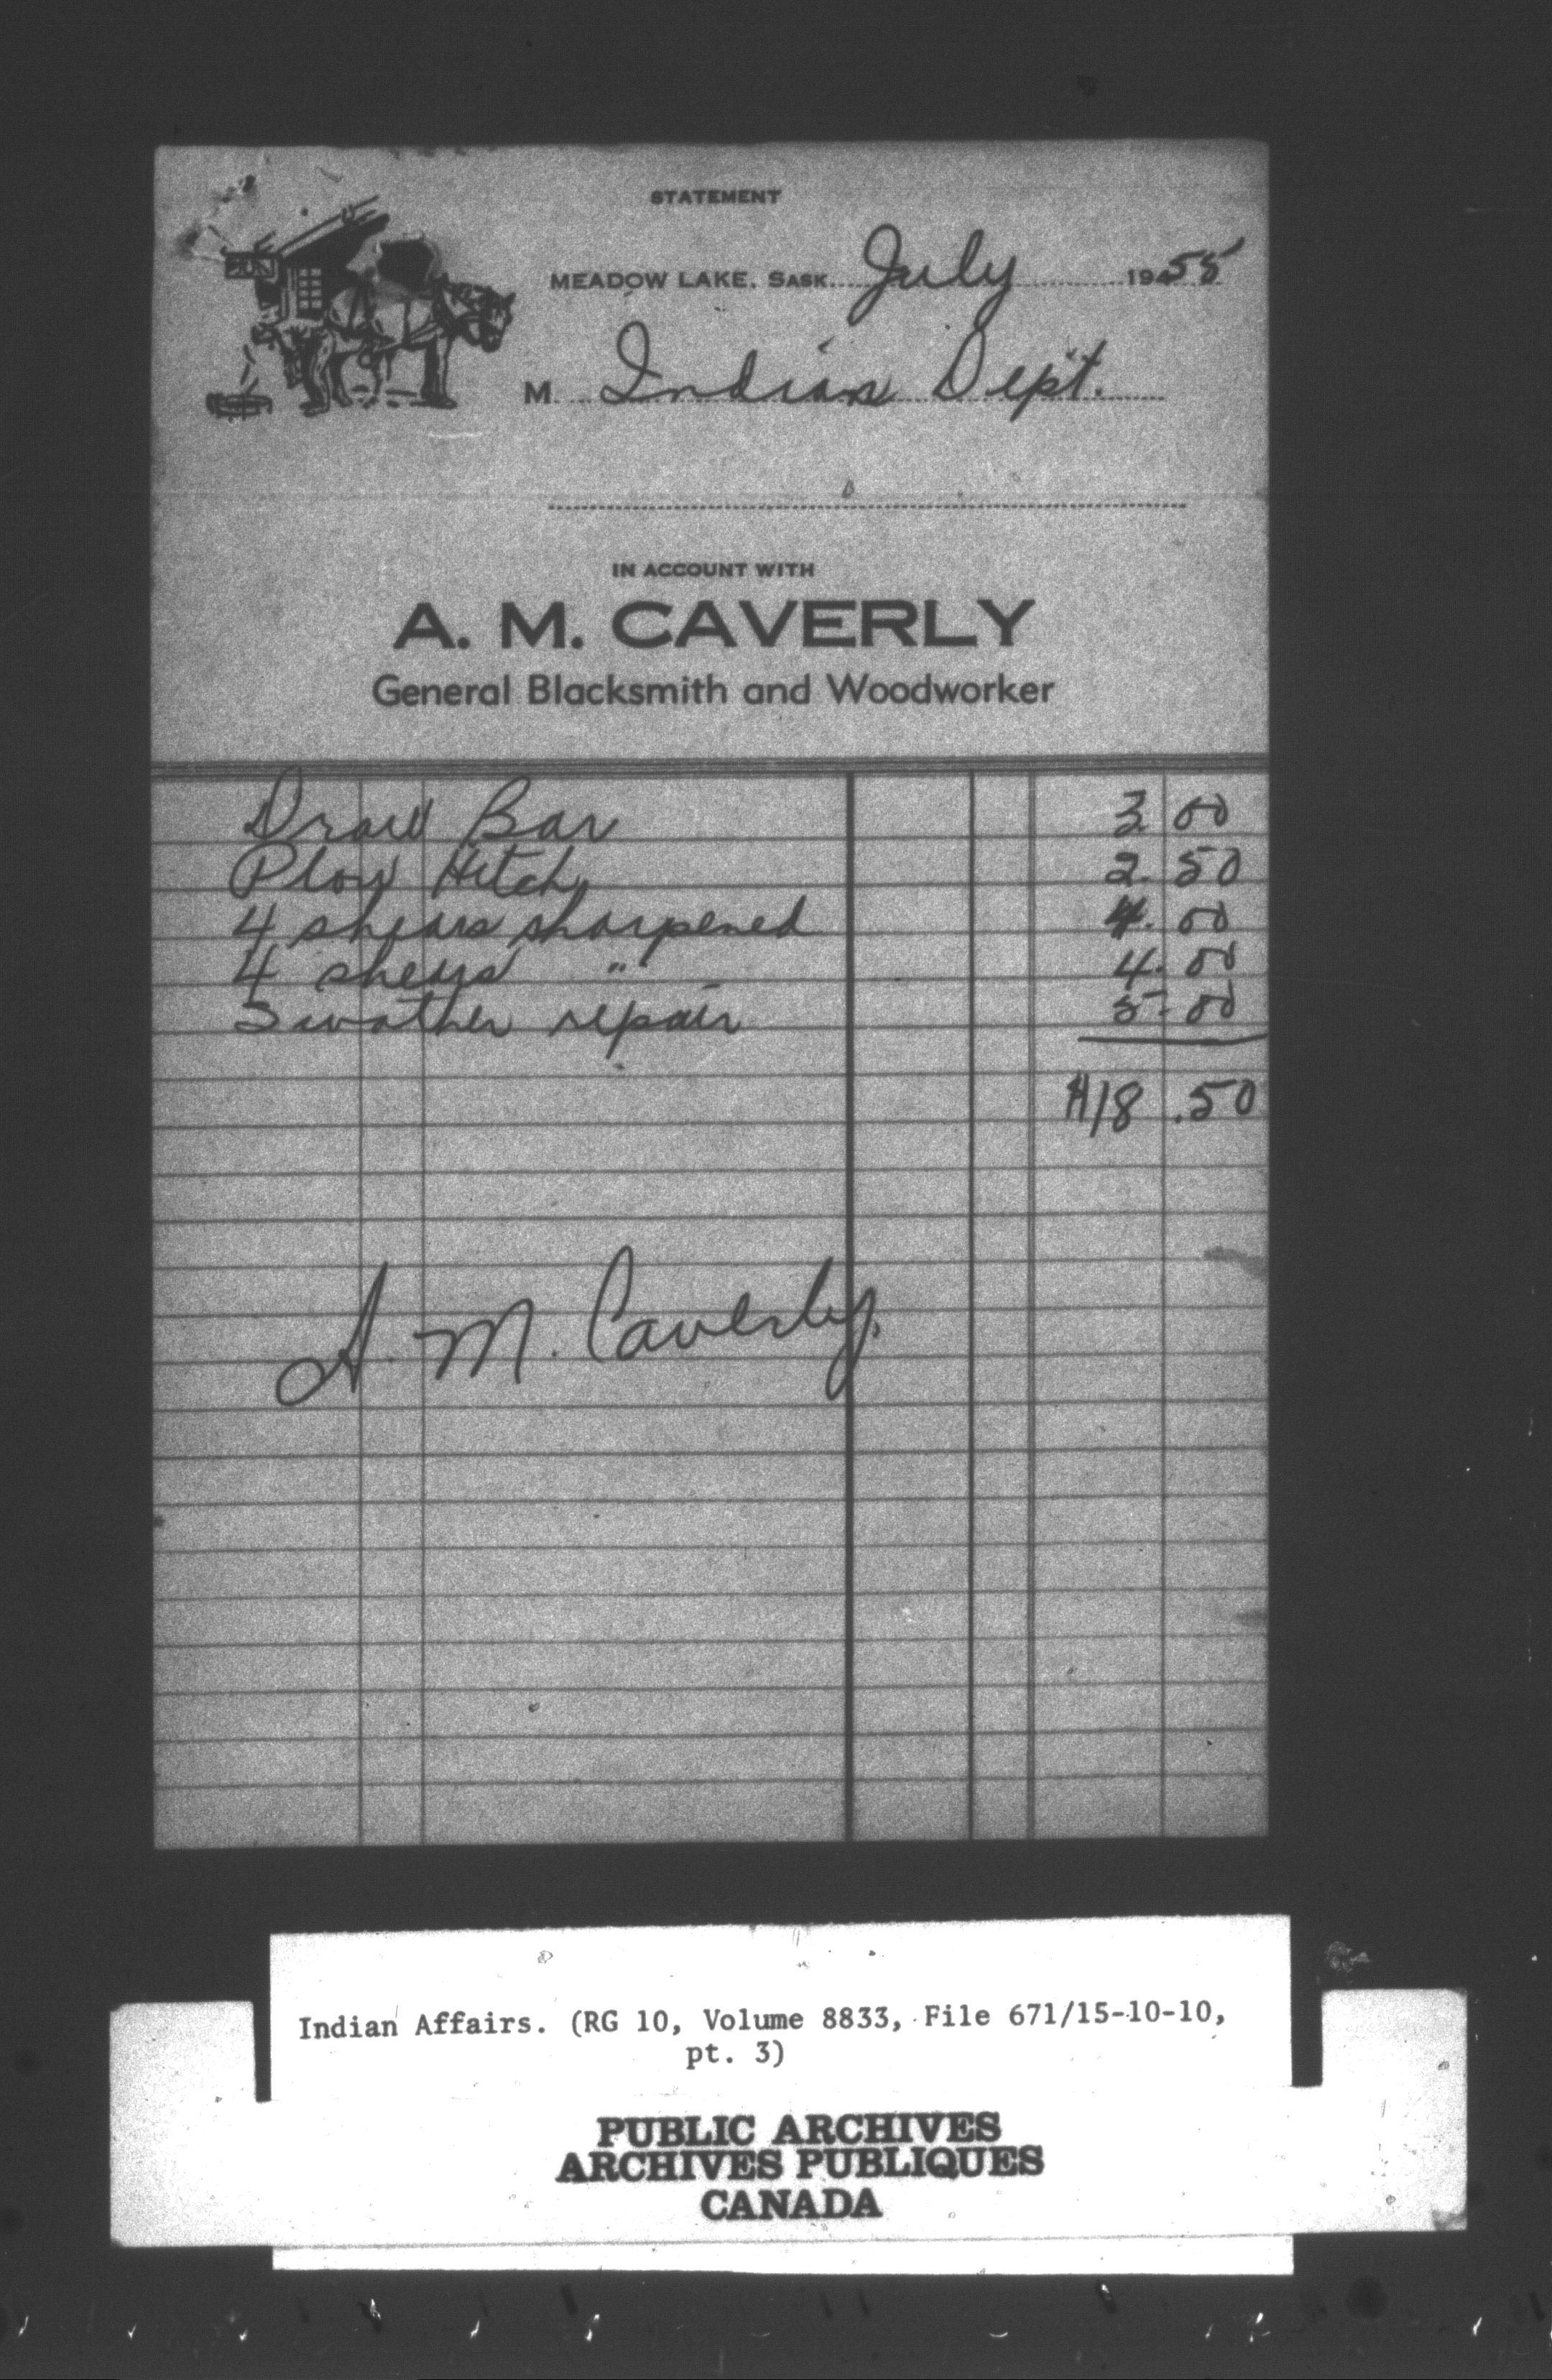 STATEMENT
MEADOW LAKE, SASK. July 1955
M. Indian Dept.
IN ACCOUNT WITH
A. M. CAVERLY
General Blacksmith and Woodworker
Draw Bar 3 00
Plow Hitch 2.50
4 shears sharpened 4.00
4 shears " 4.00
Swather repair 5-00
$18.50
A. M. Caverly.
Indian Affairs. (RG 10, Volume 8833, File 671/15-10-10,
pt. 3)
PUBLIC ARCHIVES
ARCHIVES PUBLIQUES
CANADA